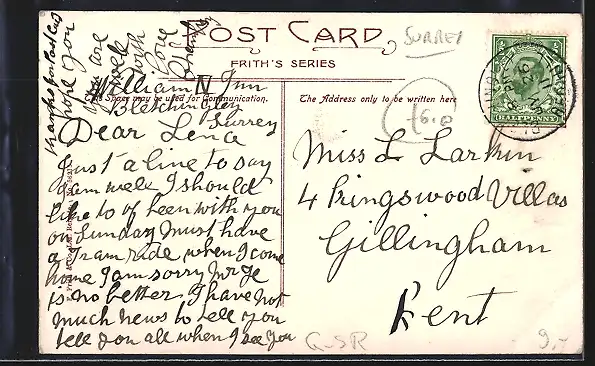 POST CARD
FRITH'S SERIES
This Space may be used for Communication.
The Address only to be written here
SURREY
HALFPENNY
£6.0
William IV Inn
Bletchingley
Surrey
Dear Lena
Just a line to say
I am well I should
like to of been with you
on Sunday must have
a Tram ride when I come
home I am sorry Mr Je
is no better I have not
much news to tell you
tell you all when I see you
thanks for Post Card
hope you
are
well
with
love
from
Miss L Larkin
4 Kingswood Villas
Gillingham
Kent
G-SR
9,-